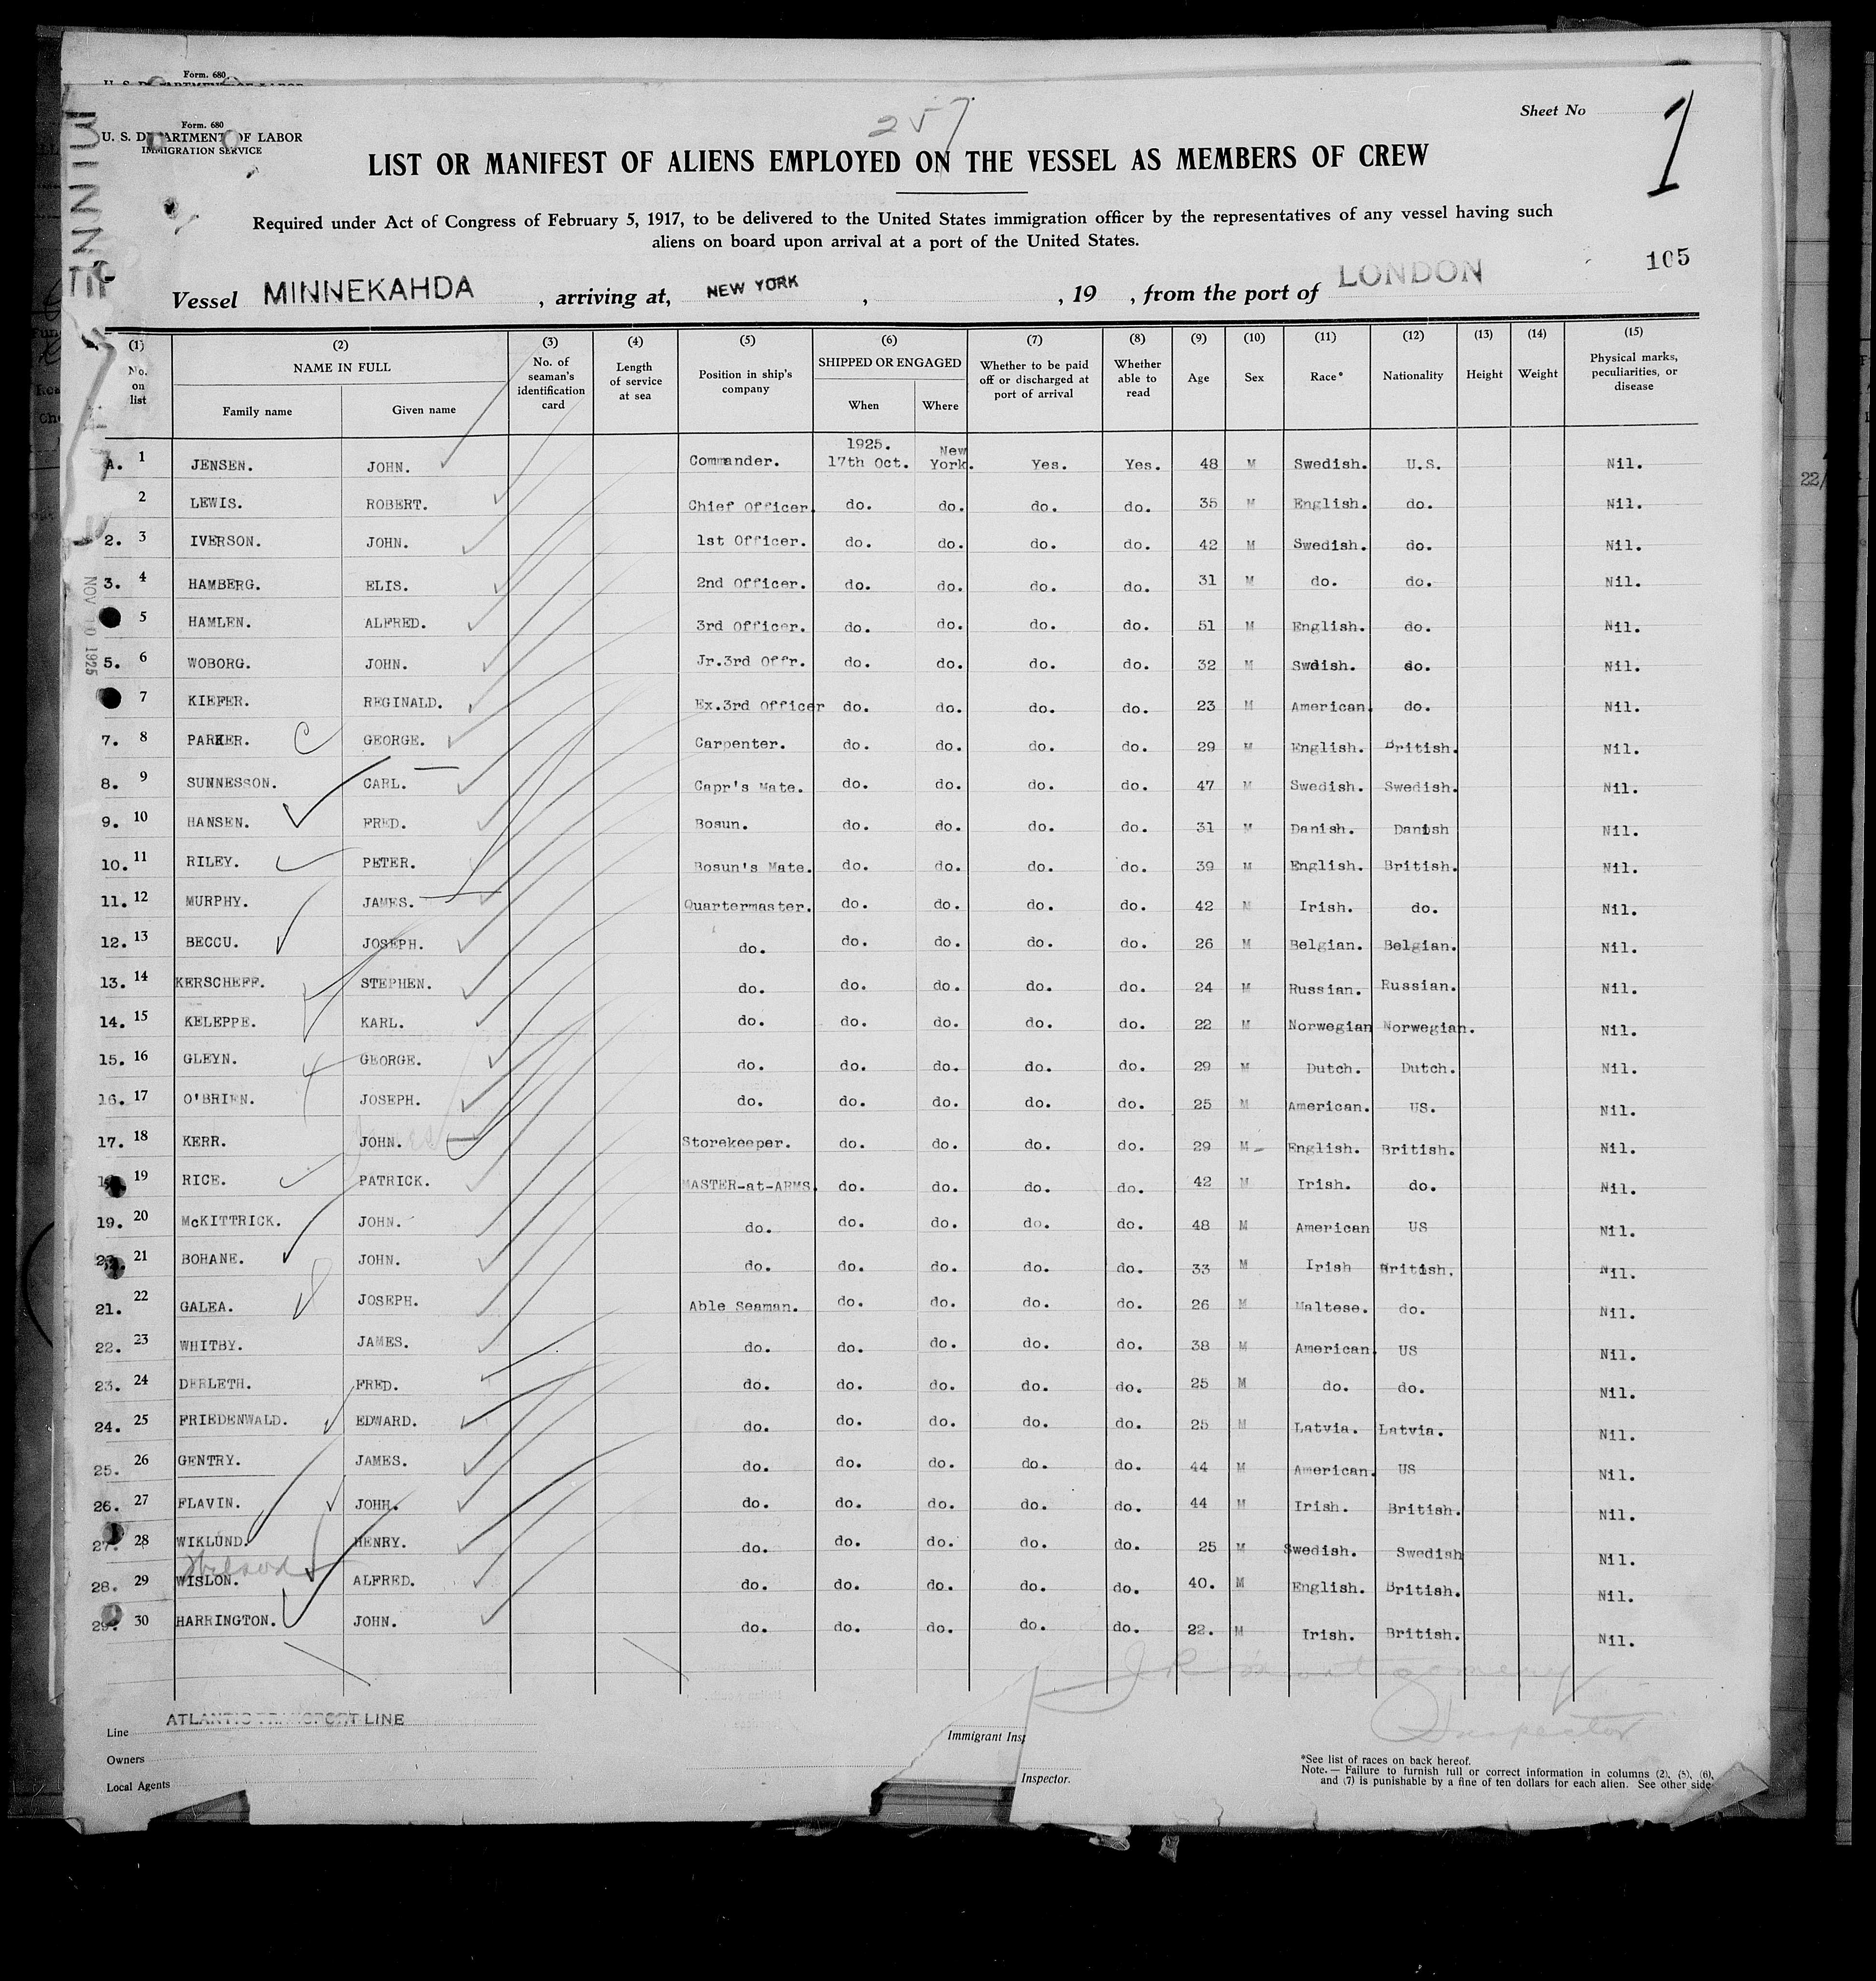 Form. 680
Form. 680
U. S. DEPARTMENT OF LABOR
IMMIGRATION SERVICE
257
Sheet No 1
LIST OR MANIFEST OF ALIENS EMPLOYED ON THE VESSEL AS MEMBERS OF CREW
Required under Act of Congress of February 5, 1917, to be delivered to the United States immigration officer by the representatives of any vessel having such
aliens on board upon arrival at a port of the United States.
105
Vessel MINNEKAHDA , arriving at, NEW YORK , , 19 , from the port of LONDON
(1) (2) (3) (4) (5) (6) (7) (8) (9) (10) (11) (12) (13) (14) (15)
No. on list NAME IN FULL Family name Given name No. of seaman's identification card Length of service at sea Position in ship's company SHIPPED OR ENGAGED When Where Whether to be paid off or discharged at port of arrival Whether able to read Age Sex Race* Nationality Height Weight Physical marks, peculiarities, or disease
A. 1 JENSEN. JOHN. Commander. 1925. 17th Oct. New York. Yes. Yes. 48 M Swedish. U.S. Nil.
2 LEWIS. ROBERT. Chief Officer. do. do. do. do. 35 M English. do. Nil.
2. 3 IVERSON. JOHN. 1st Officer. do. do. do. do. 42 M Swedish. do. Nil.
3. 4 HAMBERG. ELIS. 2nd Officer. do. do. do. do. 31 M do. do. Nil.
5 HAMLEN. ALFRED. 3rd Officer. do. do. do. do. 51 M English. do. Nil.
5. 6 WOBORG. JOHN. Jr.3rd Offr. do. do. do. do. 32 M Swdish. do. Nil.
7 KIEFER. REGINALD. Ex.3rd Officer do. do. do. do. 23 M American. do. Nil.
7. 8 PARKER. C GEORGE. Carpenter. do. do. do. do. 29 M English. British. Nil.
8. 9 SUNNESSON. CARL. Capr's Mate. do. do. do. do. 47 M Swedish. Swedish. Nil.
9. 10 HANSEN. FRED. Bosun. do. do. do. do. 31 M Danish. Danish Nil.
10. 11 RILEY. PETER. Bosun's Mate. do. do. do. do. 39 M English. British. Nil.
11. 12 MURPHY. JAMES. Quartermaster. do. do. do. do. 42 M Irish. do. Nil.
12. 13 BECCU. JOSEPH. do. do. do. do. do. 26 M Belgian. Belgian. Nil.
13. 14 KERSCHEFF. STEPHEN. do. do. do. do. do. 24 M Russian. Russian. Nil.
14. 15 KELEPPE. KARL. do. do. do. do. do. 22 M Norwegian Norwegian. Nil.
15. 16 GLEYN. GEORGE. do. do. do. do. do. 29 M Dutch. Dutch. Nil.
16. 17 O'BRIEN. JOSEPH. do. do. do. do. do. 25 M American. US. Nil.
17. 18 KERR. JOHN. Storekeeper. do. do. do. do. 29 M English. British. Nil.
19 RICE. PATRICK. MASTER-at-ARMS. do. do. do. do. 42 M Irish. do. Nil.
19. 20 McKITTRICK. JOHN. do. do. do. do. do. 48 M American US Nil.
21 BOHANE. JOHN. do. do. do. do. do. 33 M Irish British. Nil.
21. 22 GALEA. JOSEPH. Able Seaman. do. do. do. do. 26 M Maltese. do. Nil.
22. 23 WHITBY. JAMES. do. do. do. do. do. 38 M American. US Nil.
23. 24 DERLETH. FRED. do. do. do. do. do. 25 M do. do. Nil.
24. 25 FRIEDENWALD. EDWARD. do. do. do. do. do. 25 M Latvia. Latvia. Nil.
25. 26 GENTRY. JAMES. do. do. do. do. do. 44 M American. US Nil.
26. 27 FLAVIN. JOHH. do. do. do. do. do. 44 M Irish. British. Nil.
27. 28 WIKLUND. HENRY. do. do. do. do. do. 25 M Swedish. Swedish Nil.
Wilson
28. 29 WISLON. ALFRED. do. do. do. do. do. 40. M English. British. Nil.
29. 30 HARRINGTON. JOHN. do. do. do. do. do. 22. M Irish. British. Nil.
J R Montgomery
Inspector
Line ATLANTIC TRANSPORT LINE
Immigrant Insp
Owners
Local Agents
Inspector.
*See list of races on back hereof.
Note. — Failure to furnish full or correct information in columns (2), (5), (6),
and (7) is punishable by a fine of ten dollars for each alien. See other side
NOV 10 1925